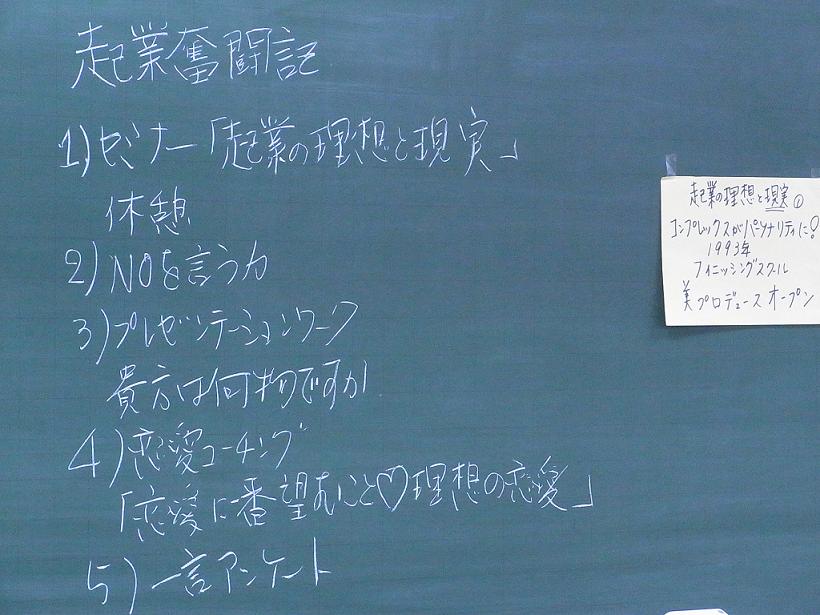 起業奮闘記
1)セミナー「起業の理想と現実」
休憩
2)NOを言う力
3)プレゼンテーションワーク
貴方は何物ですか
4)恋愛コーチング
「恋愛に一番望むこと♡理想の恋愛」
5)一言アンケート
起業の理想と現実①
コンプレックスがパーソナリティに!
1993年
フィニッシングスクール
美プロデュース オープン